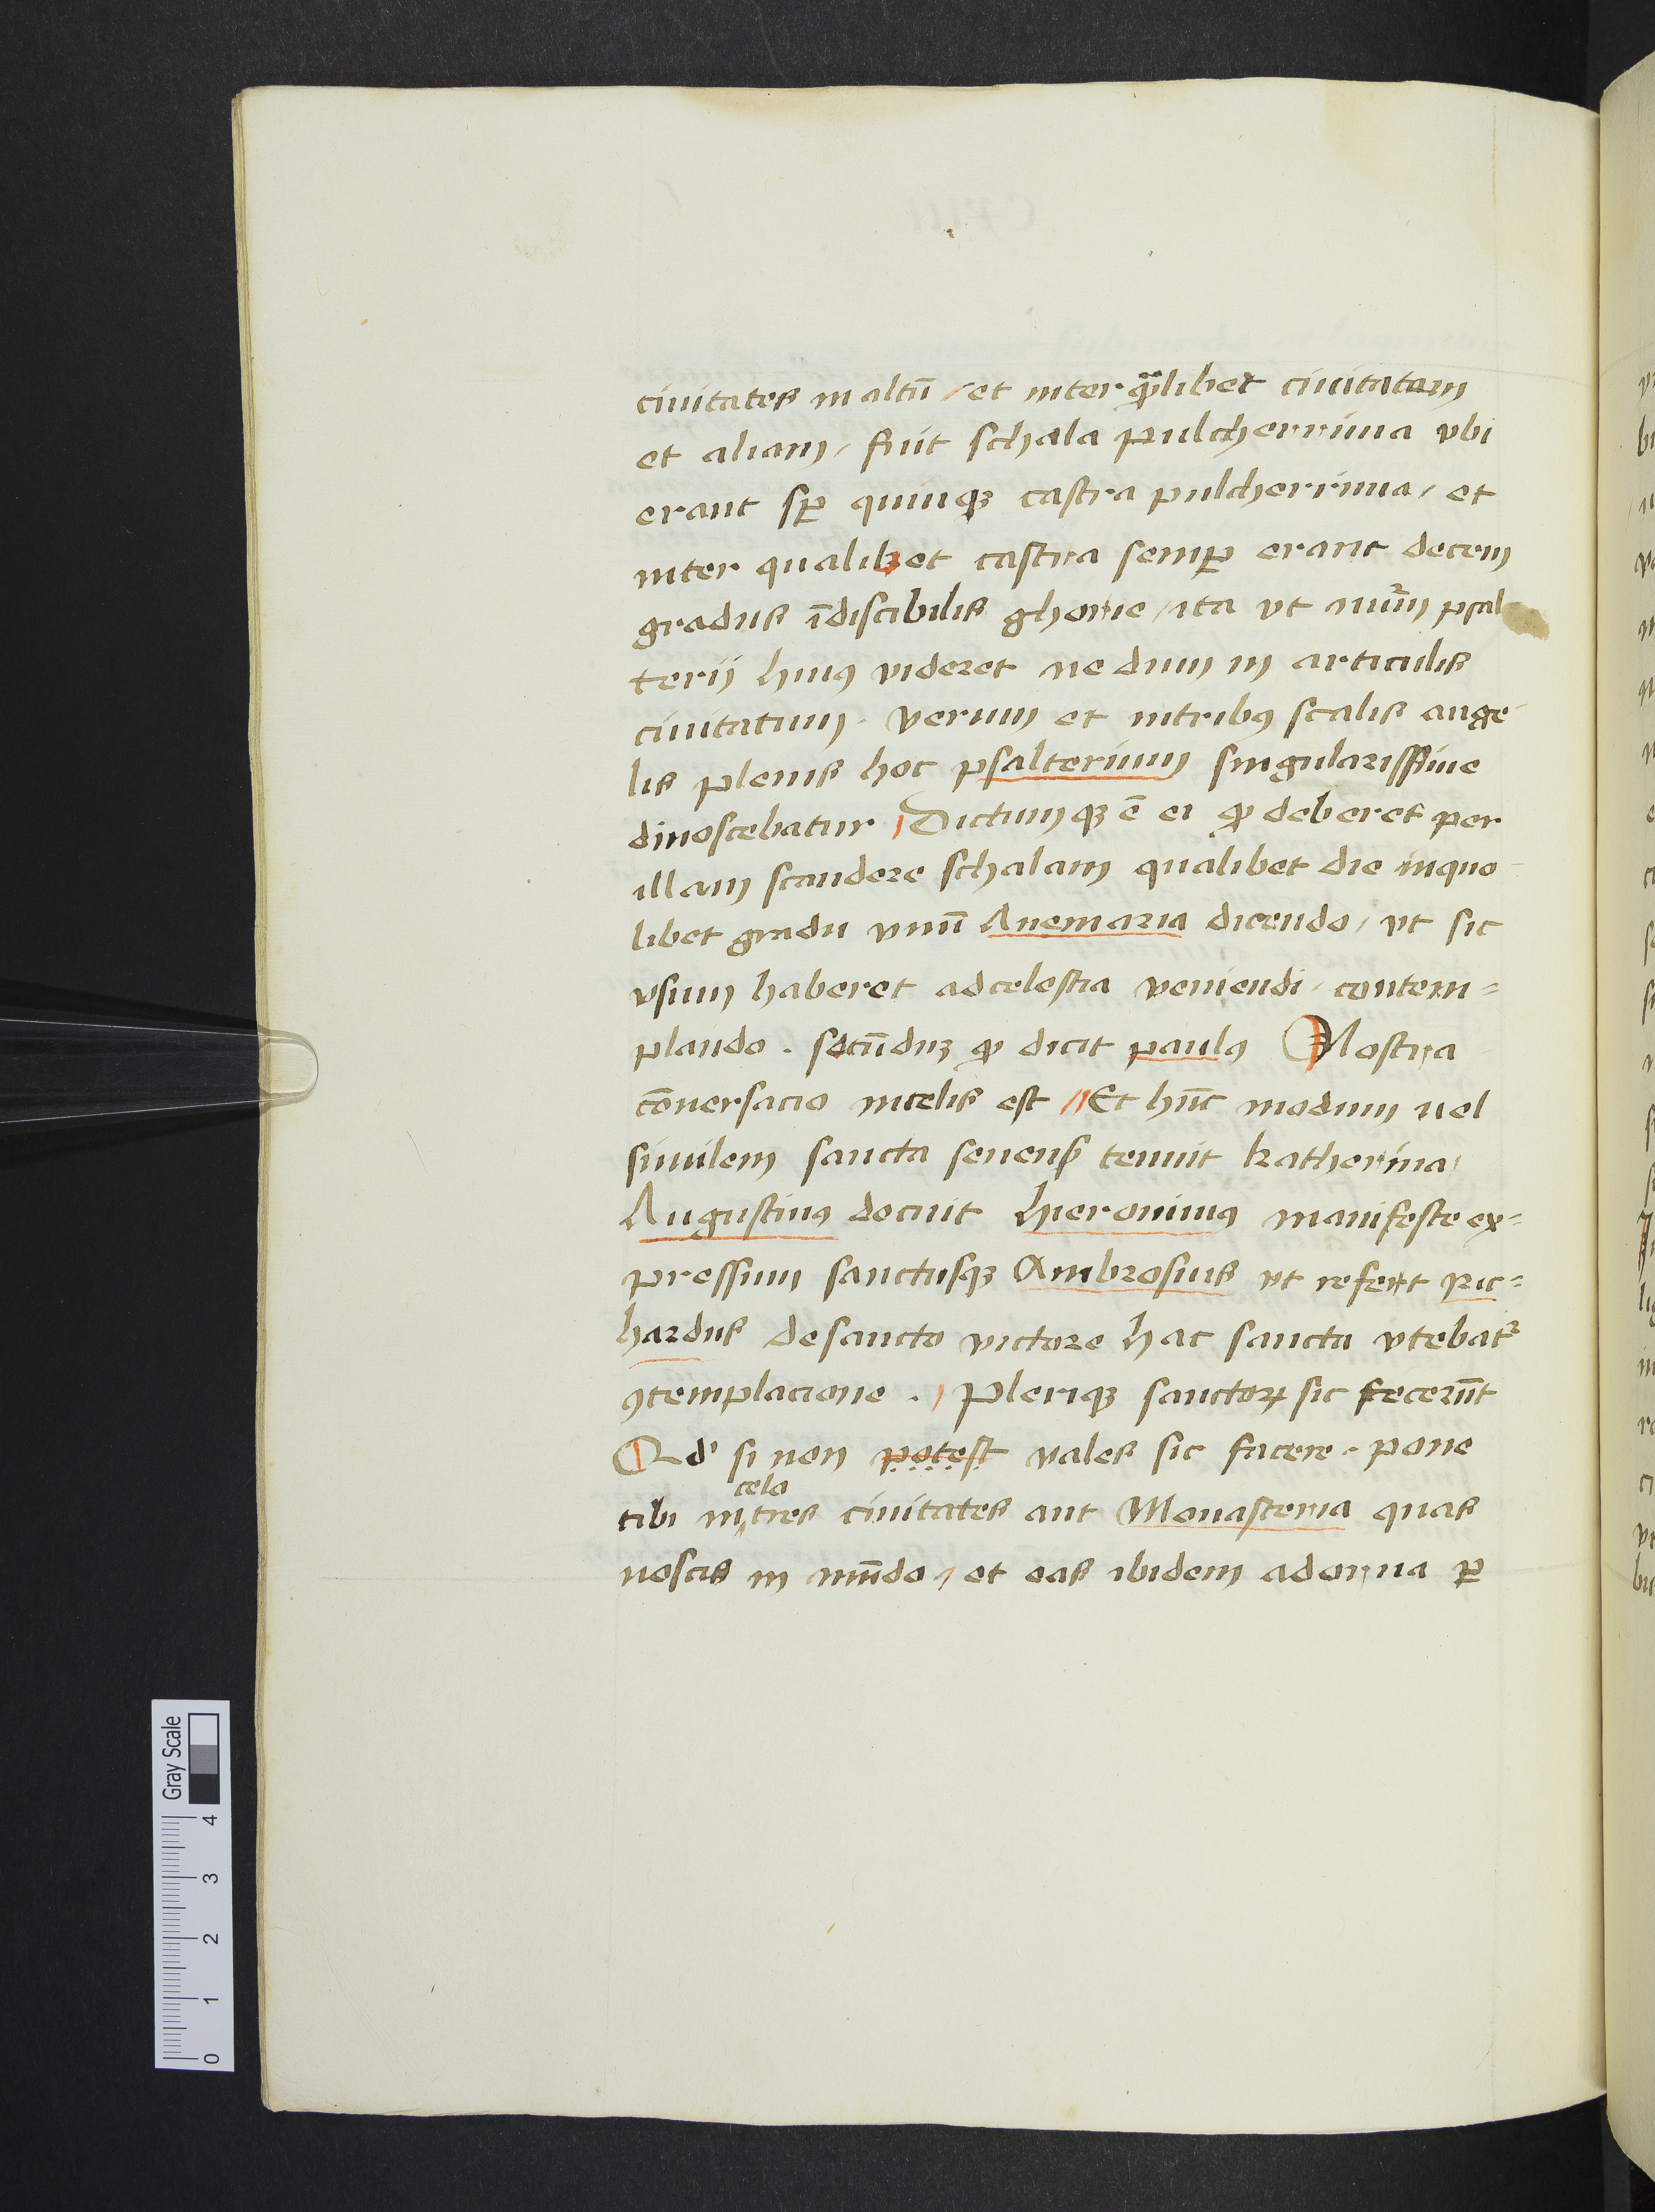 ciuitates in altū / et inter qͣlibet ciuitatam
et aliam / fuit schala pulcherrima vbi
erant sꝑ quinqꝫ castra pulcherrima / et
inter qualibet castra semꝑ erant decem
gradus īdiscibilis glorie / ita vt nūm psal
terij huiꝰ videret ne dum in articulis
ciuitatum . verum et intribꝰ scalis ange
lis plenis hoc psalterium singularissīme
dinoscebatur / Dictumqꝫ ē ei ꝙ deberet per
illam scandere schalam qualibet die inquo
libet gradu vnū Auemaria dicendo / vt sic
vsum haberet adcelestia veniendi / contem=
plando . secūduꝫ ꝙ dicit paulꝰ Nostra
cōuersacio incelis est // Et hūc modum uel
similem sancta senensꝭ tenuit katherina /
Augustinꝰ docuit hieronimꝰ manifeste ex=
pressum sanctusqꝫ Ambrosius vt refert ric=
hardus desancto victore hac sancta vtebatᷣ
ꝯtemplacione . / Pleriqꝫ sanctoꝝ sic fecerūt
Qd' si non potest vales sic facere . pone
celo
tibi in tres ciuitates aut Monasteria quas
noscis in mūdo / et eas ibidem adorna ꝑ
Gray Scale
4
3
2
1
0